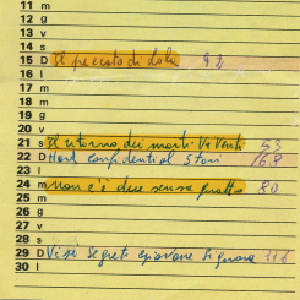 11 m
12 g
13 v
14 s
15 D Il peccato di Lola 93
16 l
17 m
18 m
19 g
20 v
21 s Il ritorno dei morti Vi Venti 53
22 D Hard confidential 3 Tori 168
23 l
24 m Non c'è due senza quattro 80
25 m
26 g
27 v
28 s
29 D Vizi segreti giovane Signora 116
30 l